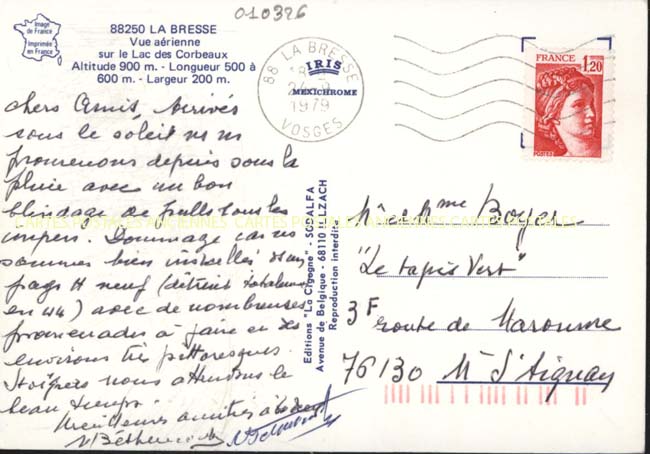 010326
Image
de France
Imprimée
en France
88250 LA BRESSE
Vue aérienne
sur le Lac des Corbeaux
Altitude 900 m. - Longueur 500 à
600 m. - Largeur 200 m.
IRIS
MEXICHROME
88 LA BRESSE
1979
VOSGES
FRANCE
1,20
POSTES
chers Amis, Arrivés
sous le soleil ns ns
promenons depuis sous la
pluie avec un bon
blindage de pulls sous les
impers. Dommage car ns
sommes bien installés ds un
pays tt neuf (détruit totalement
en 44) avec de nombreuses
promenades à faire en des
environs très pittoresques.
Stoïques nous attendons le
beau temps.
Meilleures amitiés à
Editions "La Cigogne" - SODALFA
Avenue de Belgique - 68110 ILLZACH
Reproduction interdite
Mr et Mme Boyer
"Le tapis Vert"
3F route de Maromme
76130 Mt St Aignan
CARTES POSTALES ANCIENNES CARTES POSTALES ANCIENNES CARTES POSTALES